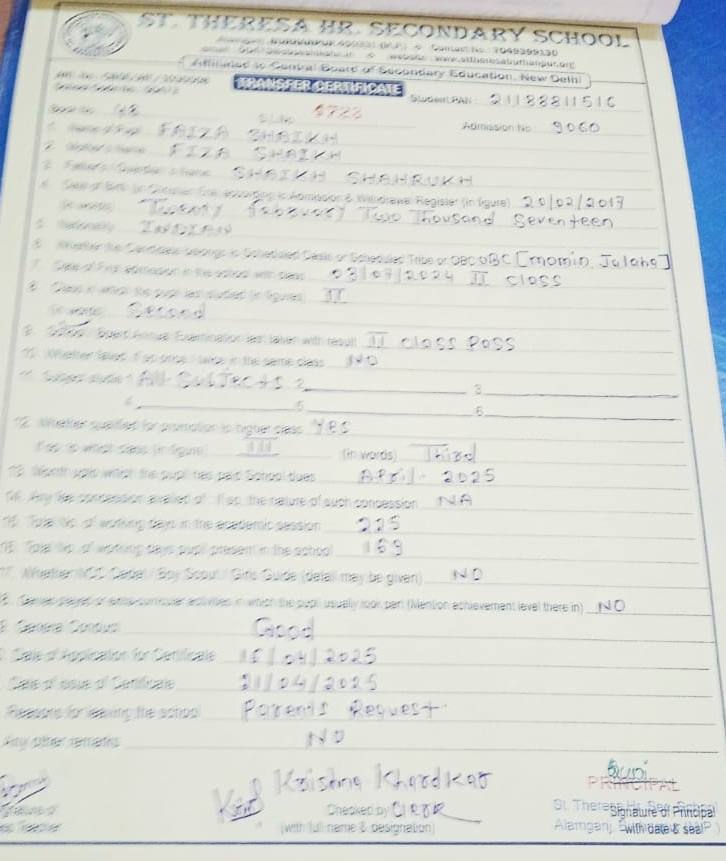 ST. THERESA HR. SECONDARY SCHOOL
Contact No. 7049399130
Affiliated to Central Board of Secondary Education, New Delhi
TRANSFER CERTIFICATE
Student PAN : 21188811516
Book No. 48 Sl. No. 4723 Admission No. 9060
1. Name of Pupil FAIZA SHAIKH
2. Mother's Name FIZA SHAIKH
3. Father's / Guardian's Name SHAIKH SHAHRUKH
4. Date of Birth (in Christian Era) according to Admission & Withdrawal Register (in figure) 20/02/2017
(in words) Twenty february Two Thousand Seventeen
5. Nationality INDIAN
6. Whether the Candidate belongs to Scheduled Caste or Scheduled Tribe or OBC OBC [momin Julaha]
7. Date of First admission in the school with class 03/07/2024 II class
8. Class in which the pupil last studied (in figures) II
(in words) Second
9. School / Board Annual Examination last taken with result II class Pass
10. Whether failed, if so once / twice in the same class NO
11. Subject studied 1. All Subjects 2. 3.
4. 5. 6.
12. Whether qualified for promotion to higher class Yes
if so, to which class (in figure) III (in words) Third
13. Month upto which the pupil has paid School dues April - 2025
14. Any fee concession availed of : if so, the nature of such concession NA
15. Total No. of working days in the academic session 225
16. Total No. of working days pupil present in the school 169
17. Whether NCC Cadet / Boy Scout / Girls Guide (detail may be given) NO
18. Games played or extra-curricular activities in which the pupil usually took part (Mention achievement level there in) NO
General Conduct Good
Date of Application for Certificate 15/04/2025
Date of issue of Certificate 21/04/2025
Reasons for leaving the school Parents Request
Any other remarks NO
Krishna Khardkar
PRINCIPAL
Signature of Checked by Clerk St. Theresa Hr. Sec. School
Signature of Principal
Class Teacher (with full name & designation) Alamganj,
with date & seal